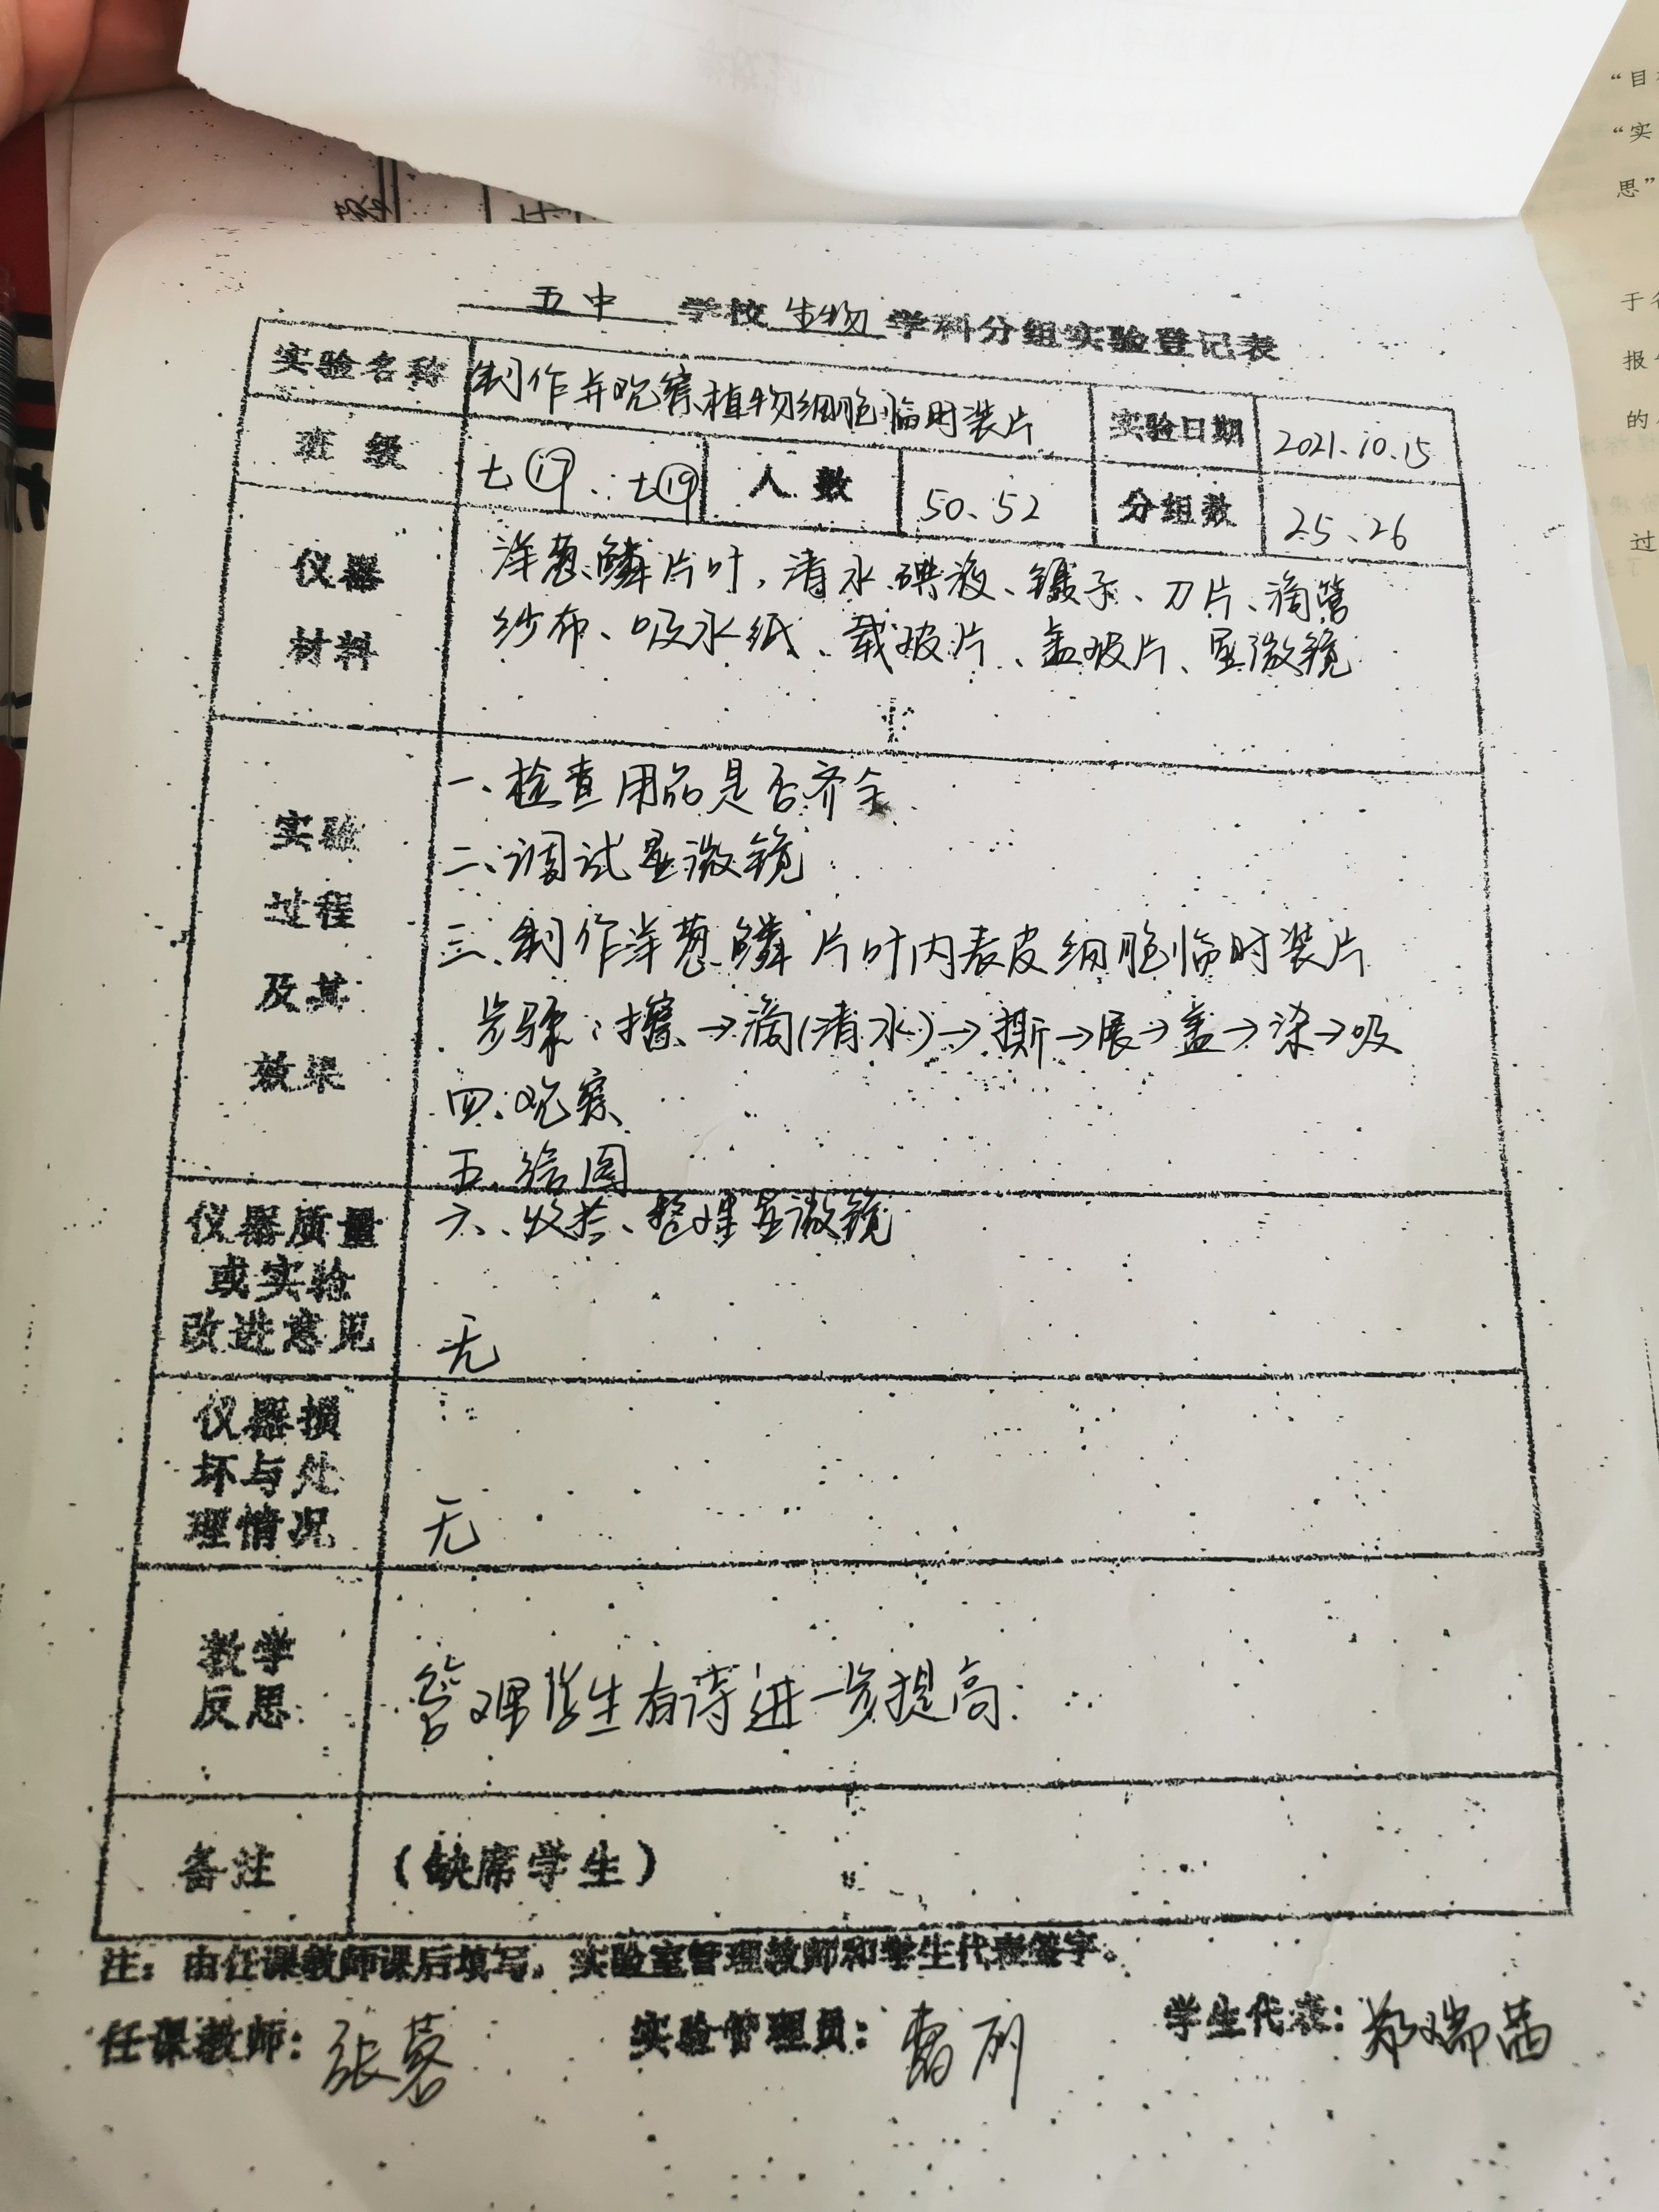 五中 学校 生物 学科分组实验登记表
实验名称 制作并观察植物细胞临时装片 实验日期 2021.10.15
班级 七⑰、七⑲ 人数 50、52 分组数 25、26
仪器材料 洋葱鳞片叶,清水、碘液、镊子、刀片、滴管
纱布、吸水纸、载玻片、盖玻片、显微镜
实验过程及其效果
一、检查用品是否齐全
二、调试显微镜
三、制作洋葱鳞片叶内表皮细胞临时装片
步骤:擦→滴(清水)→撕→展→盖→染→吸
四、观察
五、绘图
六、收拾、整理显微镜
仪器质量
或实验
改进意见 无
仪器损
坏与处
理情况 无
教学
反思 管理学生有待进一步提高
备注 (缺席学生)
注:由任课教师课后填写,实验室管理教师和学生代表签字。
任课教师:张 实验管理员: 学生代表:郑瑞茜
“目
“实
思”
于
报
的
过